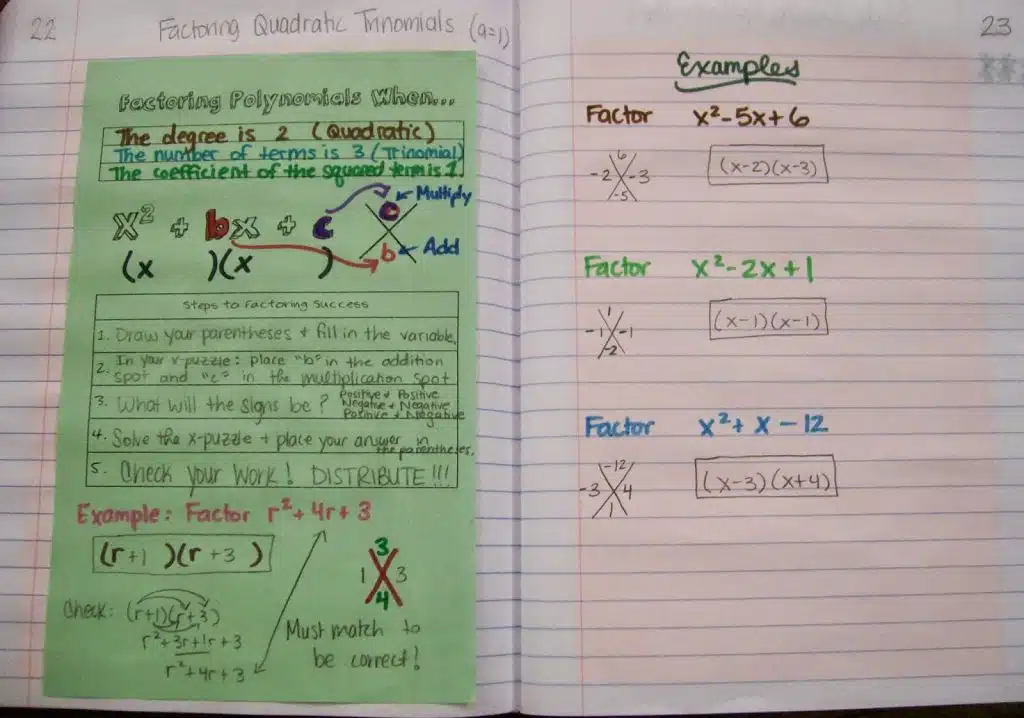 22
Factoring Quadratic Trinomials (a=1)
Factoring Polynomials When...
The degree is 2 (Quadratic)
The number of terms is 3 (Trinomial)
The coefficient of the squared term is 1.
x² + bx + c
(x )(x )
c Multiply
b Add
Steps to Factoring Success
1. Draw your parentheses + fill in the variable.
2. In your x-puzzle: place "b" in the addition
spot and "c" in the multiplication spot
3. What will the signs be? Positive + Positive
Negative + Negative
Positive + Negative
4. Solve the x-puzzle + place your answer in
the parentheses.
5. Check your work! DISTRIBUTE!!!
Example: Factor r² + 4r + 3
(r +1 )(r +3 )
3
1 3
4
Check: (r+1)(r+3)
r² + 3r + 1r + 3
r² + 4r + 3
Must match to
be correct!
23
Examples
Factor x² - 5x + 6
6
-2 -3
-5
(x-2)(x-3)
Factor x² - 2x + 1
1
-1 -1
-2
(x-1)(x-1)
Factor x² + x - 12
-12
-3 4
1
(x-3)(x+4)